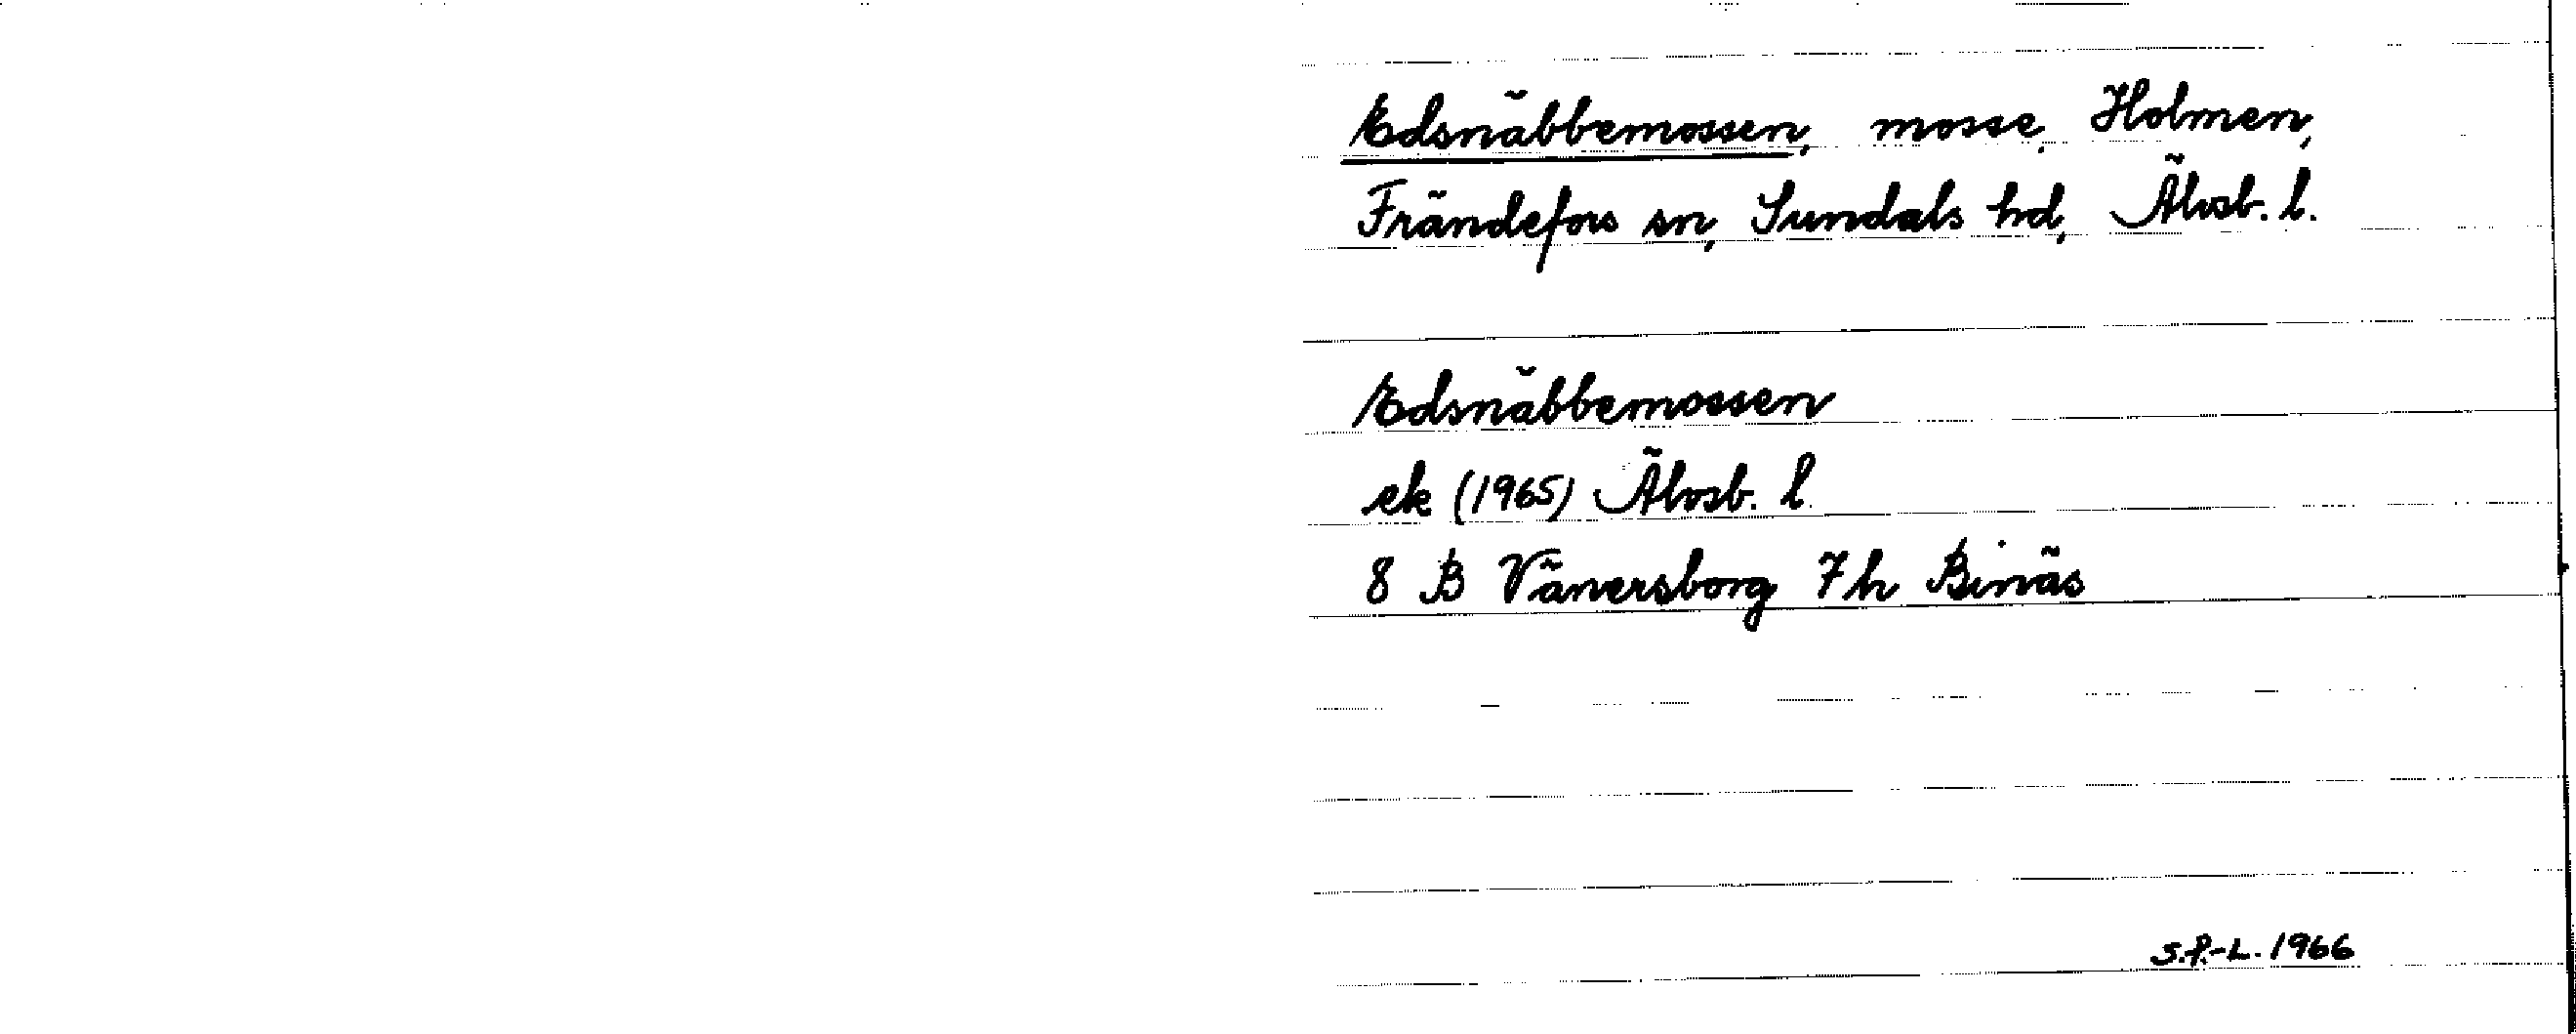 Edsnäbbemossen, mosse, Holmen,
Frändefors sn, Sundals hd, Älvsb. l.
Edsnäbbemossen
ek (1965) Älvsb. l.
8 B Vänersborg 7h Binäs
S.P.-L. 1966